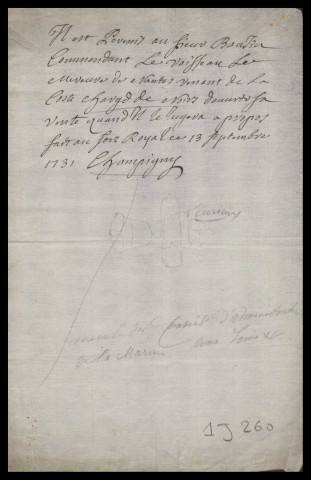 Il est Permis au sieur Baudin
Commendant Le Vaisseau Le
Mercure de Nantes venant de La
Coste chargé de Noirs douvrir sa
vente quand Il Le Jugera a propos
fait au fort Royal ce 13 septembre
1731 Champigny
de la Marine
1J 260